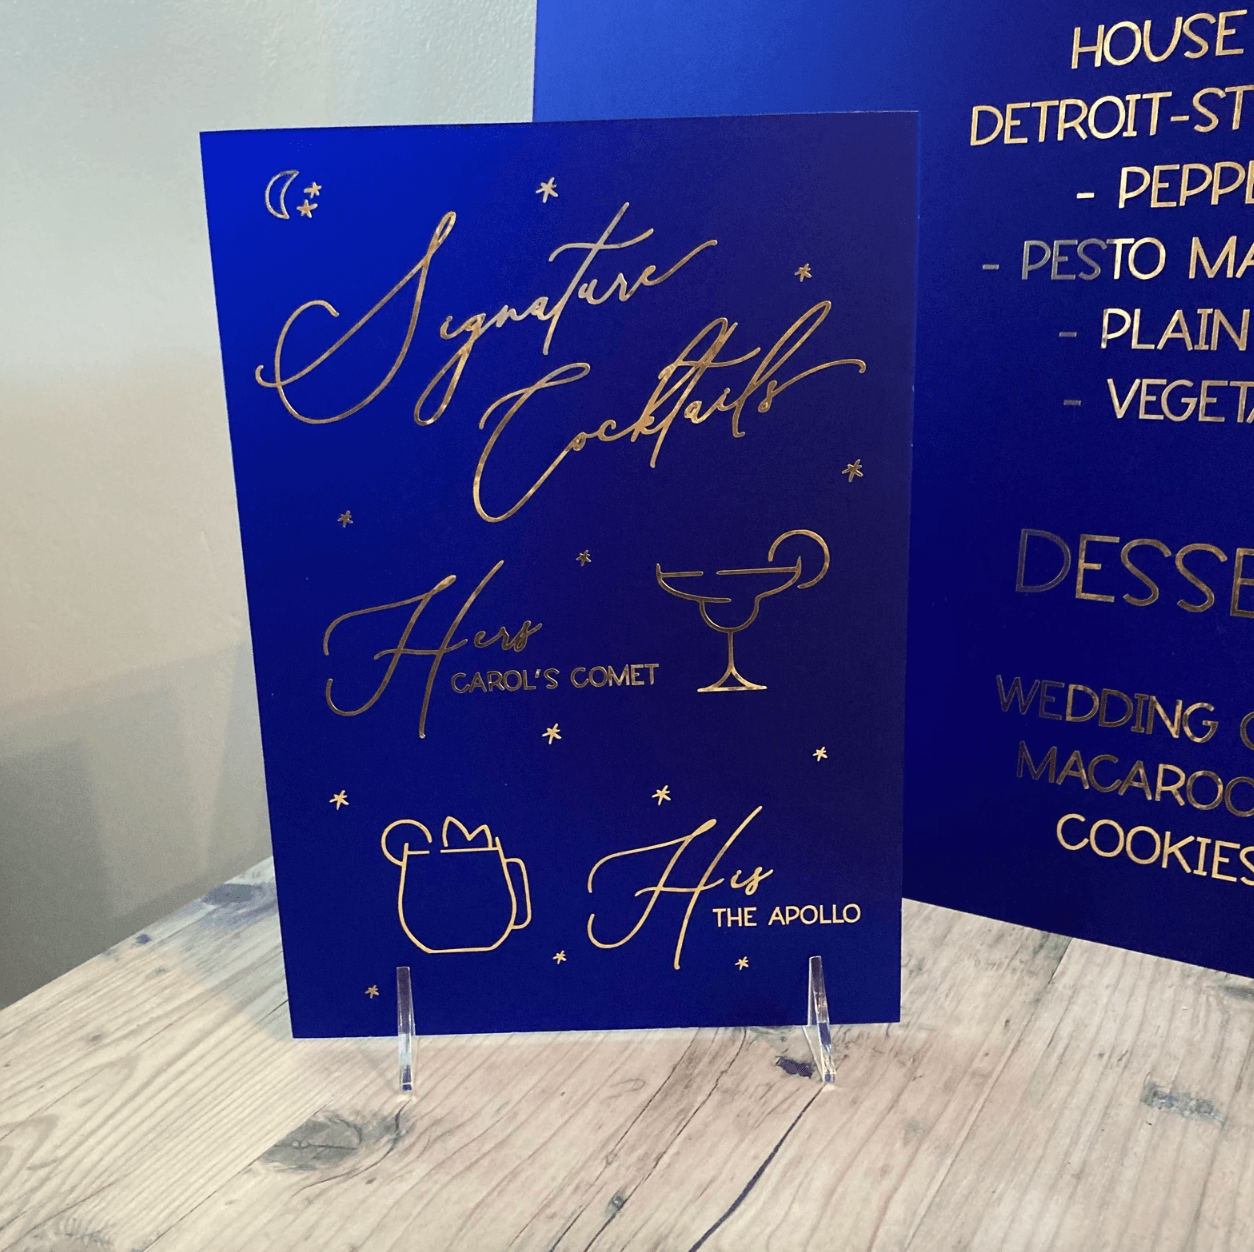 Signature
Cocktails
Hers
CAROL'S COMET
His
THE APOLLO
HOUSE
DETROIT-ST
- PEPPE
- PESTO MA
- PLAIN
- VEGETA
DESSE
WEDDING
MACAROO
COOKIES